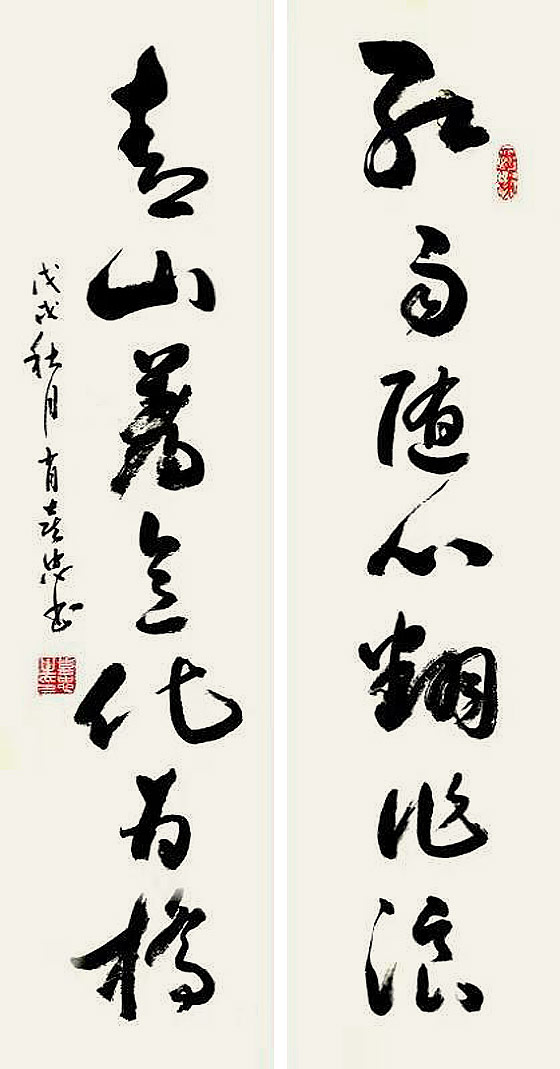 红雨随心翻作浪
青山着意化为桥
戊戌秋月肖喜忠书